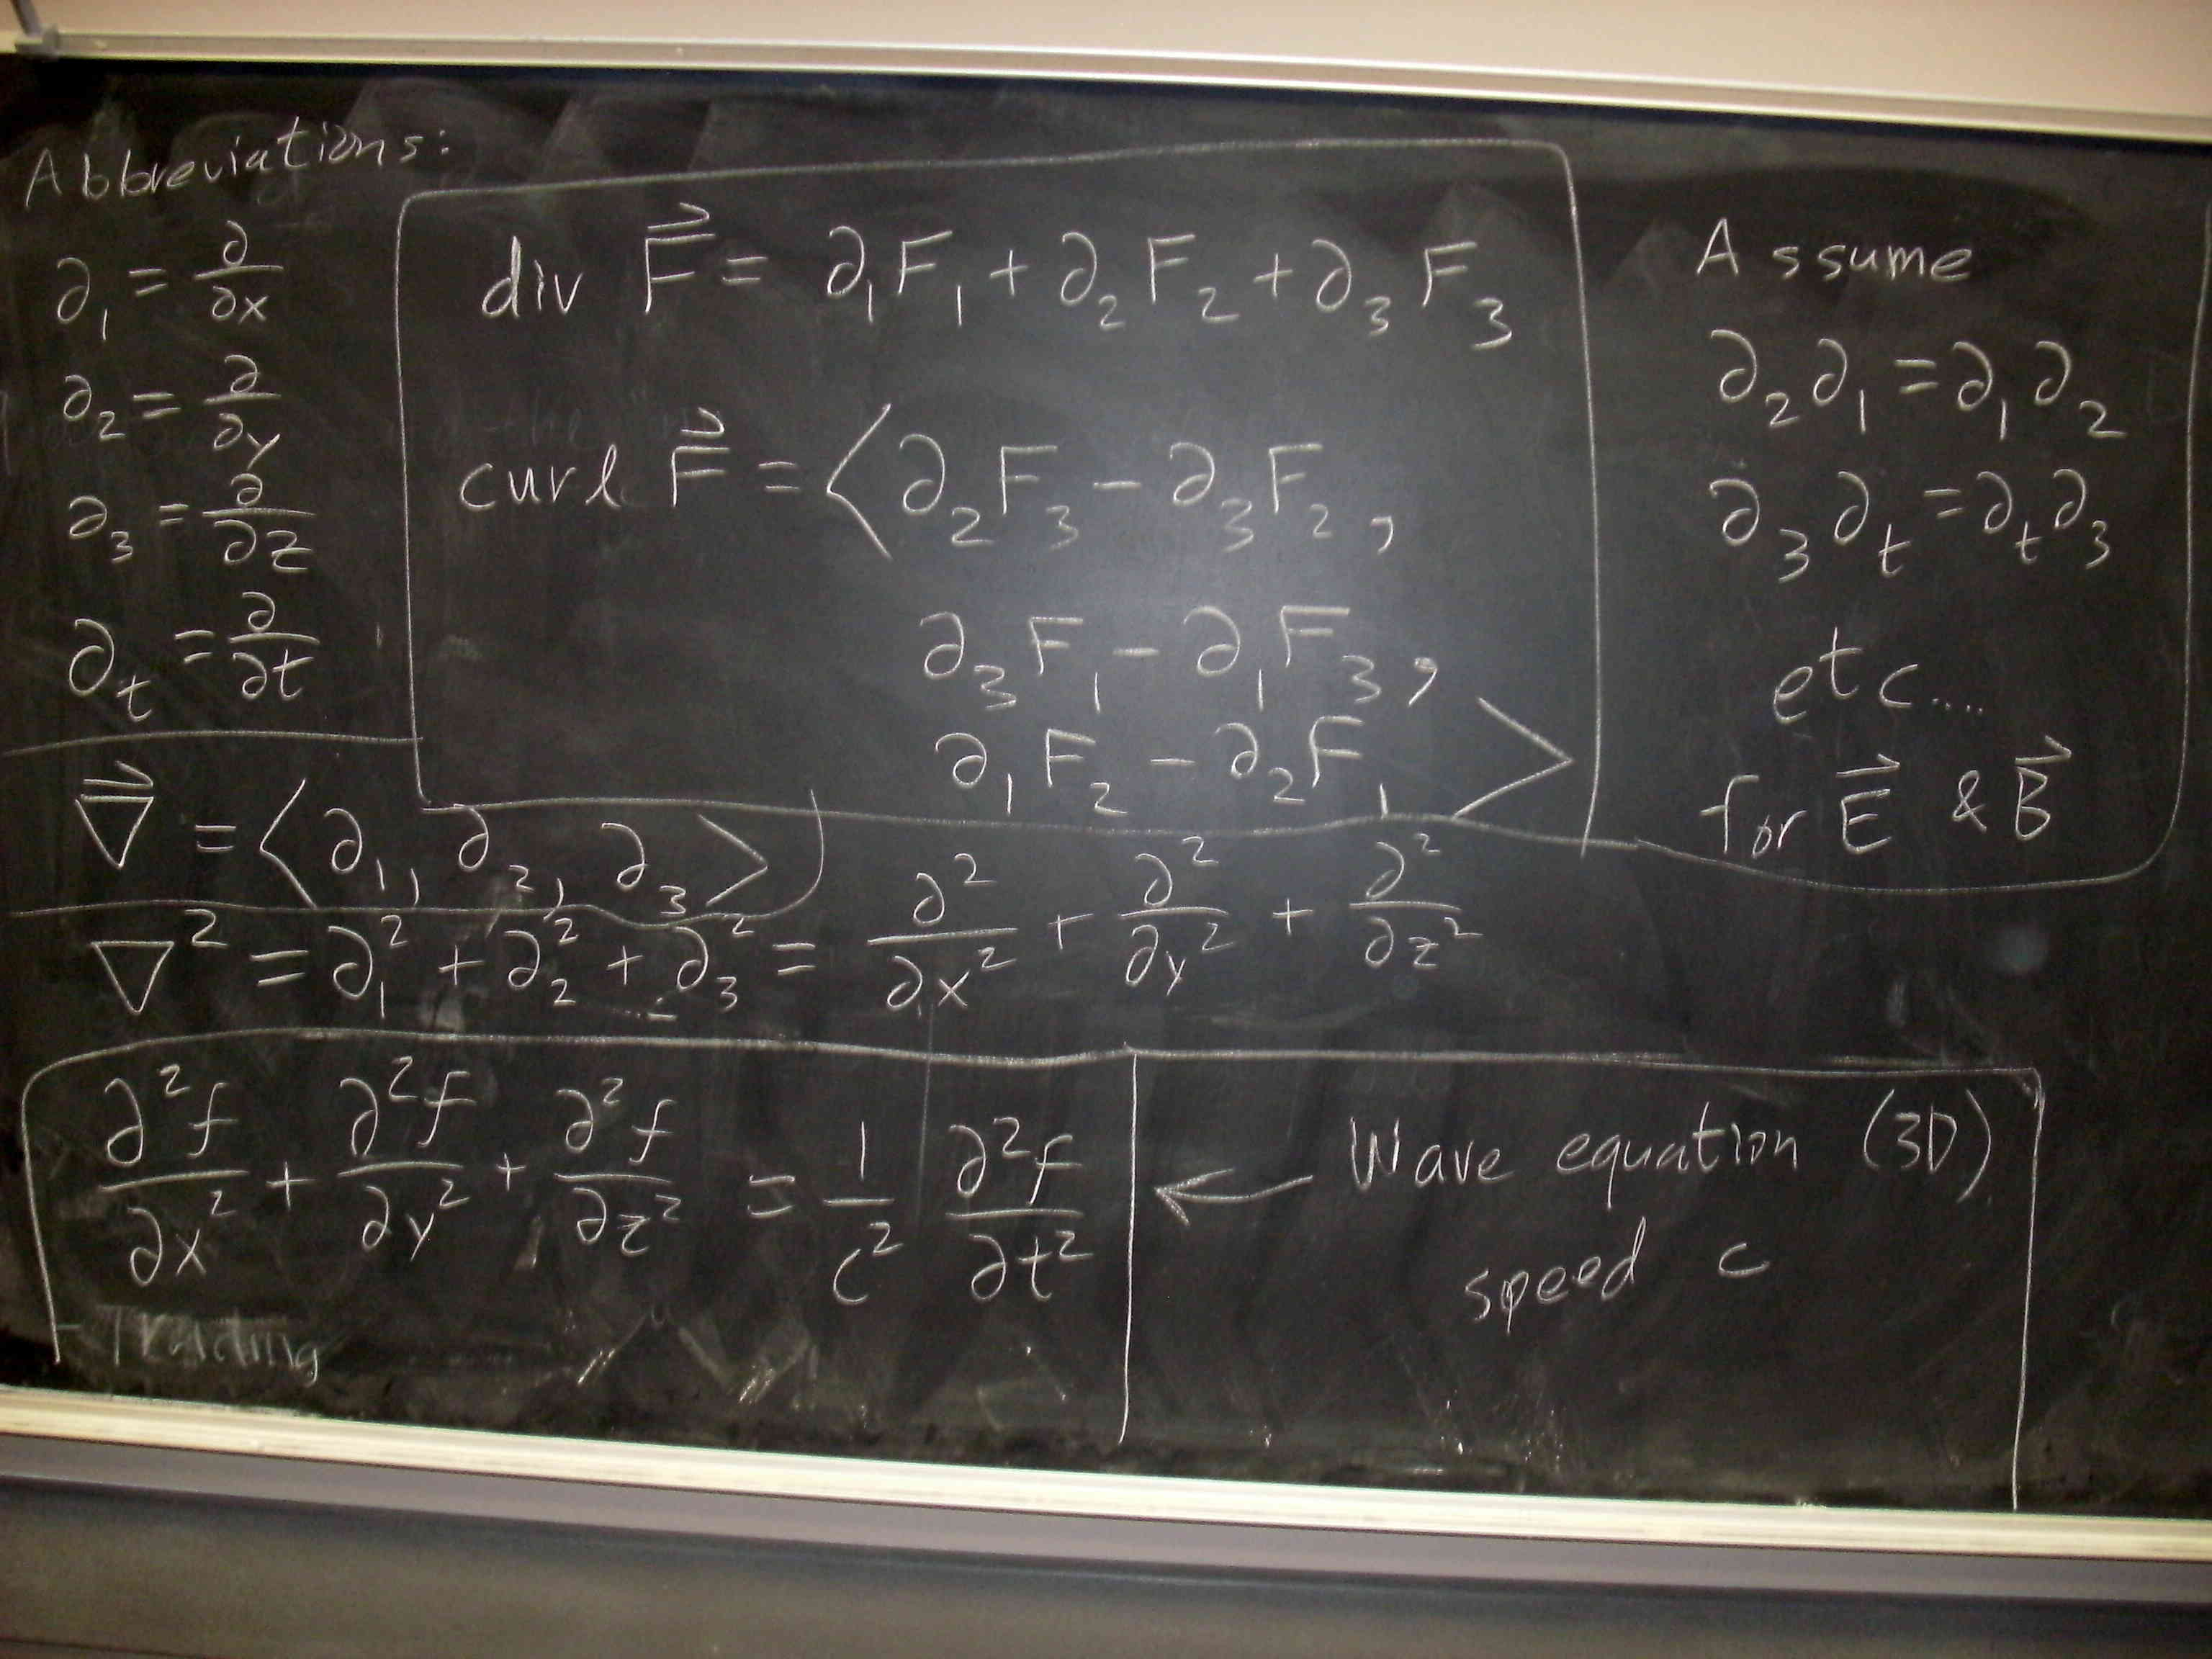 Abbreviations:
∂₁ = ∂/∂x
∂₂ = ∂/∂y
∂₃ = ∂/∂z
∂ₜ = ∂/∂t
div F⃗ = ∂₁F₁ + ∂₂F₂ + ∂₃F₃
curl F⃗ = ⟨∂₂F₃ − ∂₃F₂,
∂₃F₁ − ∂₁F₃,
∂₁F₂ − ∂₂F₁⟩
Assume
∂₂∂₁ = ∂₁∂₂
∂₃∂ₜ = ∂ₜ∂₃
etc....
for E⃗ & B⃗
∇⃗ = ⟨∂₁, ∂₂, ∂₃⟩
∇² = ∂₁² + ∂₂² + ∂₃² = ∂²/∂x² + ∂²/∂y² + ∂²/∂z²
∂²f/∂x² + ∂²f/∂y² + ∂²f/∂z² = 1/c² ∂²f/∂t²
← Wave equation (3D)
speed c
Trading